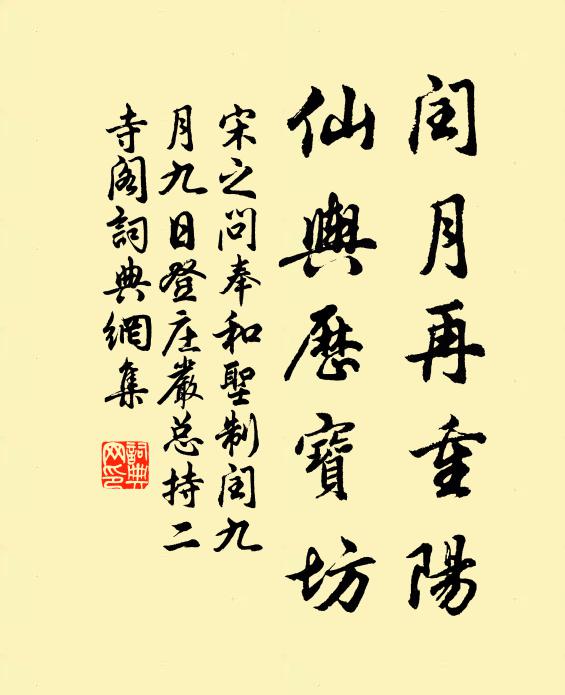 闰月再重陽
仙輿歷寶坊
宋之问奉和聖制闰九
月九日登庄嚴总持二
寺阁詞典網集
詞典
网印